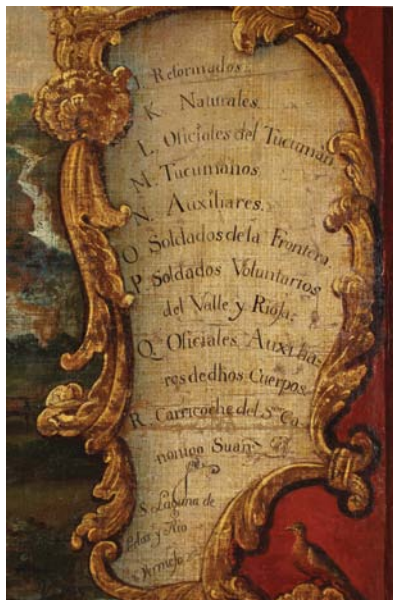 J. Reformados.
K Naturales.
L. Oficiales del Tucuman.
M. Tucumanos.
N. Auxiliares.
O Soldados de la Frontera.
P. Soldados Voluntarios
del Valle y Rioja.
Q Oficiales Auxilia-
res de dhos Cuerpos
R. Carricoche del Sor Ca-
nonigo Suar
S. Laguna de
y Rio
Vermejo